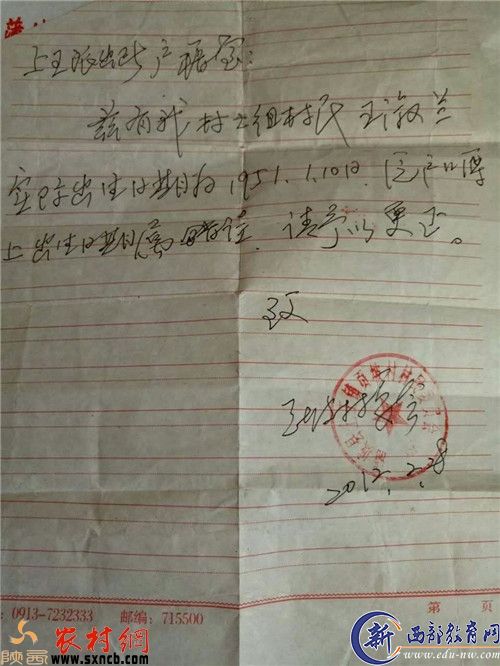 上王派出所户籍室:
兹有我村七组村民王淑兰
实际出生日期为1951.1.10日.
上出生日期
请予以更正。
致
2012.2.28
0913-7232333 邮编: 715500
第 页
陕西
农村網
www.sxncb.com
新 西部教育网
www.edu-nw.com